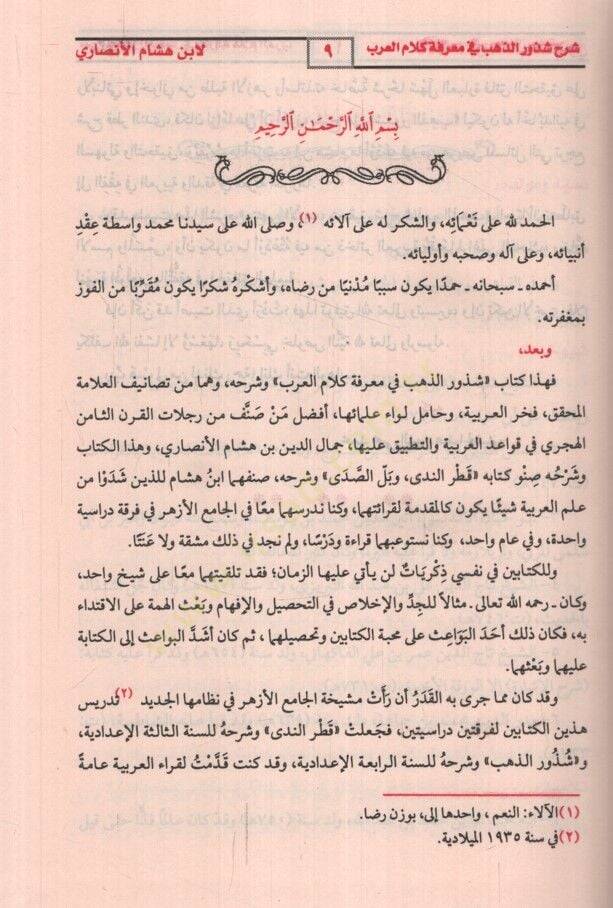 شرح شذور الذهب في معرفة كلام العرب
٩
لابن هشام الأنصاري
بِسْمِ اللهِ الرَّحْمَـٰنِ الرَّحِيمِ
الحمد لله على نَعْمائِه، والشكر له على آلائه (١)، وصلى الله على سيدنا محمد واسطة عِقْدِ
أنبيائه، وعلى آله وصحبه وأوليائه.
أحمده ـ سبحانه ـ حمدًا يكون سببًا مُدْنيًا من رضاه، وأشكرُهُ شكرًا يكون مُقَرِّبًا من الفوز
بمغفرته.
وبعد،
فهذا كتاب «شذور الذهب في معرفة كلام العرب» وشرحه، وهما من تصانيف العلامة
المحقق، فخر العربية، وحامل لواء علمائها، أفضل مَنْ صَنَّف من رجلات القرن الثامن
الهجري في قواعد العربية والتطبيق عليها، جمال الدين بن هشام الأنصاري، وهذا الكتاب
وشَرْحُه صِنْو كتابه «قَطْر الندى، وبَلّ الصَّدَى» وشرحه، صنفهما ابنُ هشام للذين شَدَوْا من
علم العربية شيئًا يكون كالمقدمة لقرائتهما، وكنا ندرسهما معًا في الجامع الأزهر في فرقة دراسية
واحدة، وفي عام واحد، وكنا نستوعبهما قراءة ودَرْسًا، ولم نجد في ذلك مشقة ولا عَنَتًا.
وللكتابين في نفسي ذِكْرِيَاتٌ لن يأتي عليها الزمان؛ فقد تلقيتهما معًا على شيخ واحد،
وكان ـ رحمه الله تعالى ـ مثالاً للجِدِّ والإخلاص في التحصيل والإفهام وبَعْث الهمة على الاقتداء
به، فكان ذلك أحَدَ البَوَاعِث على محبة الكتابين وتحصيلهما، ثم كان أشَدَّ البواعث إلى الكتابة
عليهما وبَعْثهما.
وقد كان مما جرى به القَدَرُ أن رَأَتْ مشيخة الجامع الأزهر في نظامها الجديد (٢) تدريس
هذين الكتابين لفرقتين دراسيتين، فجَعلتْ «قَطْر الندى» وشرحهُ للسنة الثالثة الإعدادية،
و«شُذُور الذهب» وشرحهُ للسنة الرابعة الإعدادية، وقد كنت قَدَّمْتُ لقراء العربية عامةً
(١) الآلاء: النعم، واحدها إلى، بوزن رضا.
(٢) في سنة ١٩٣٥ الميلادية.